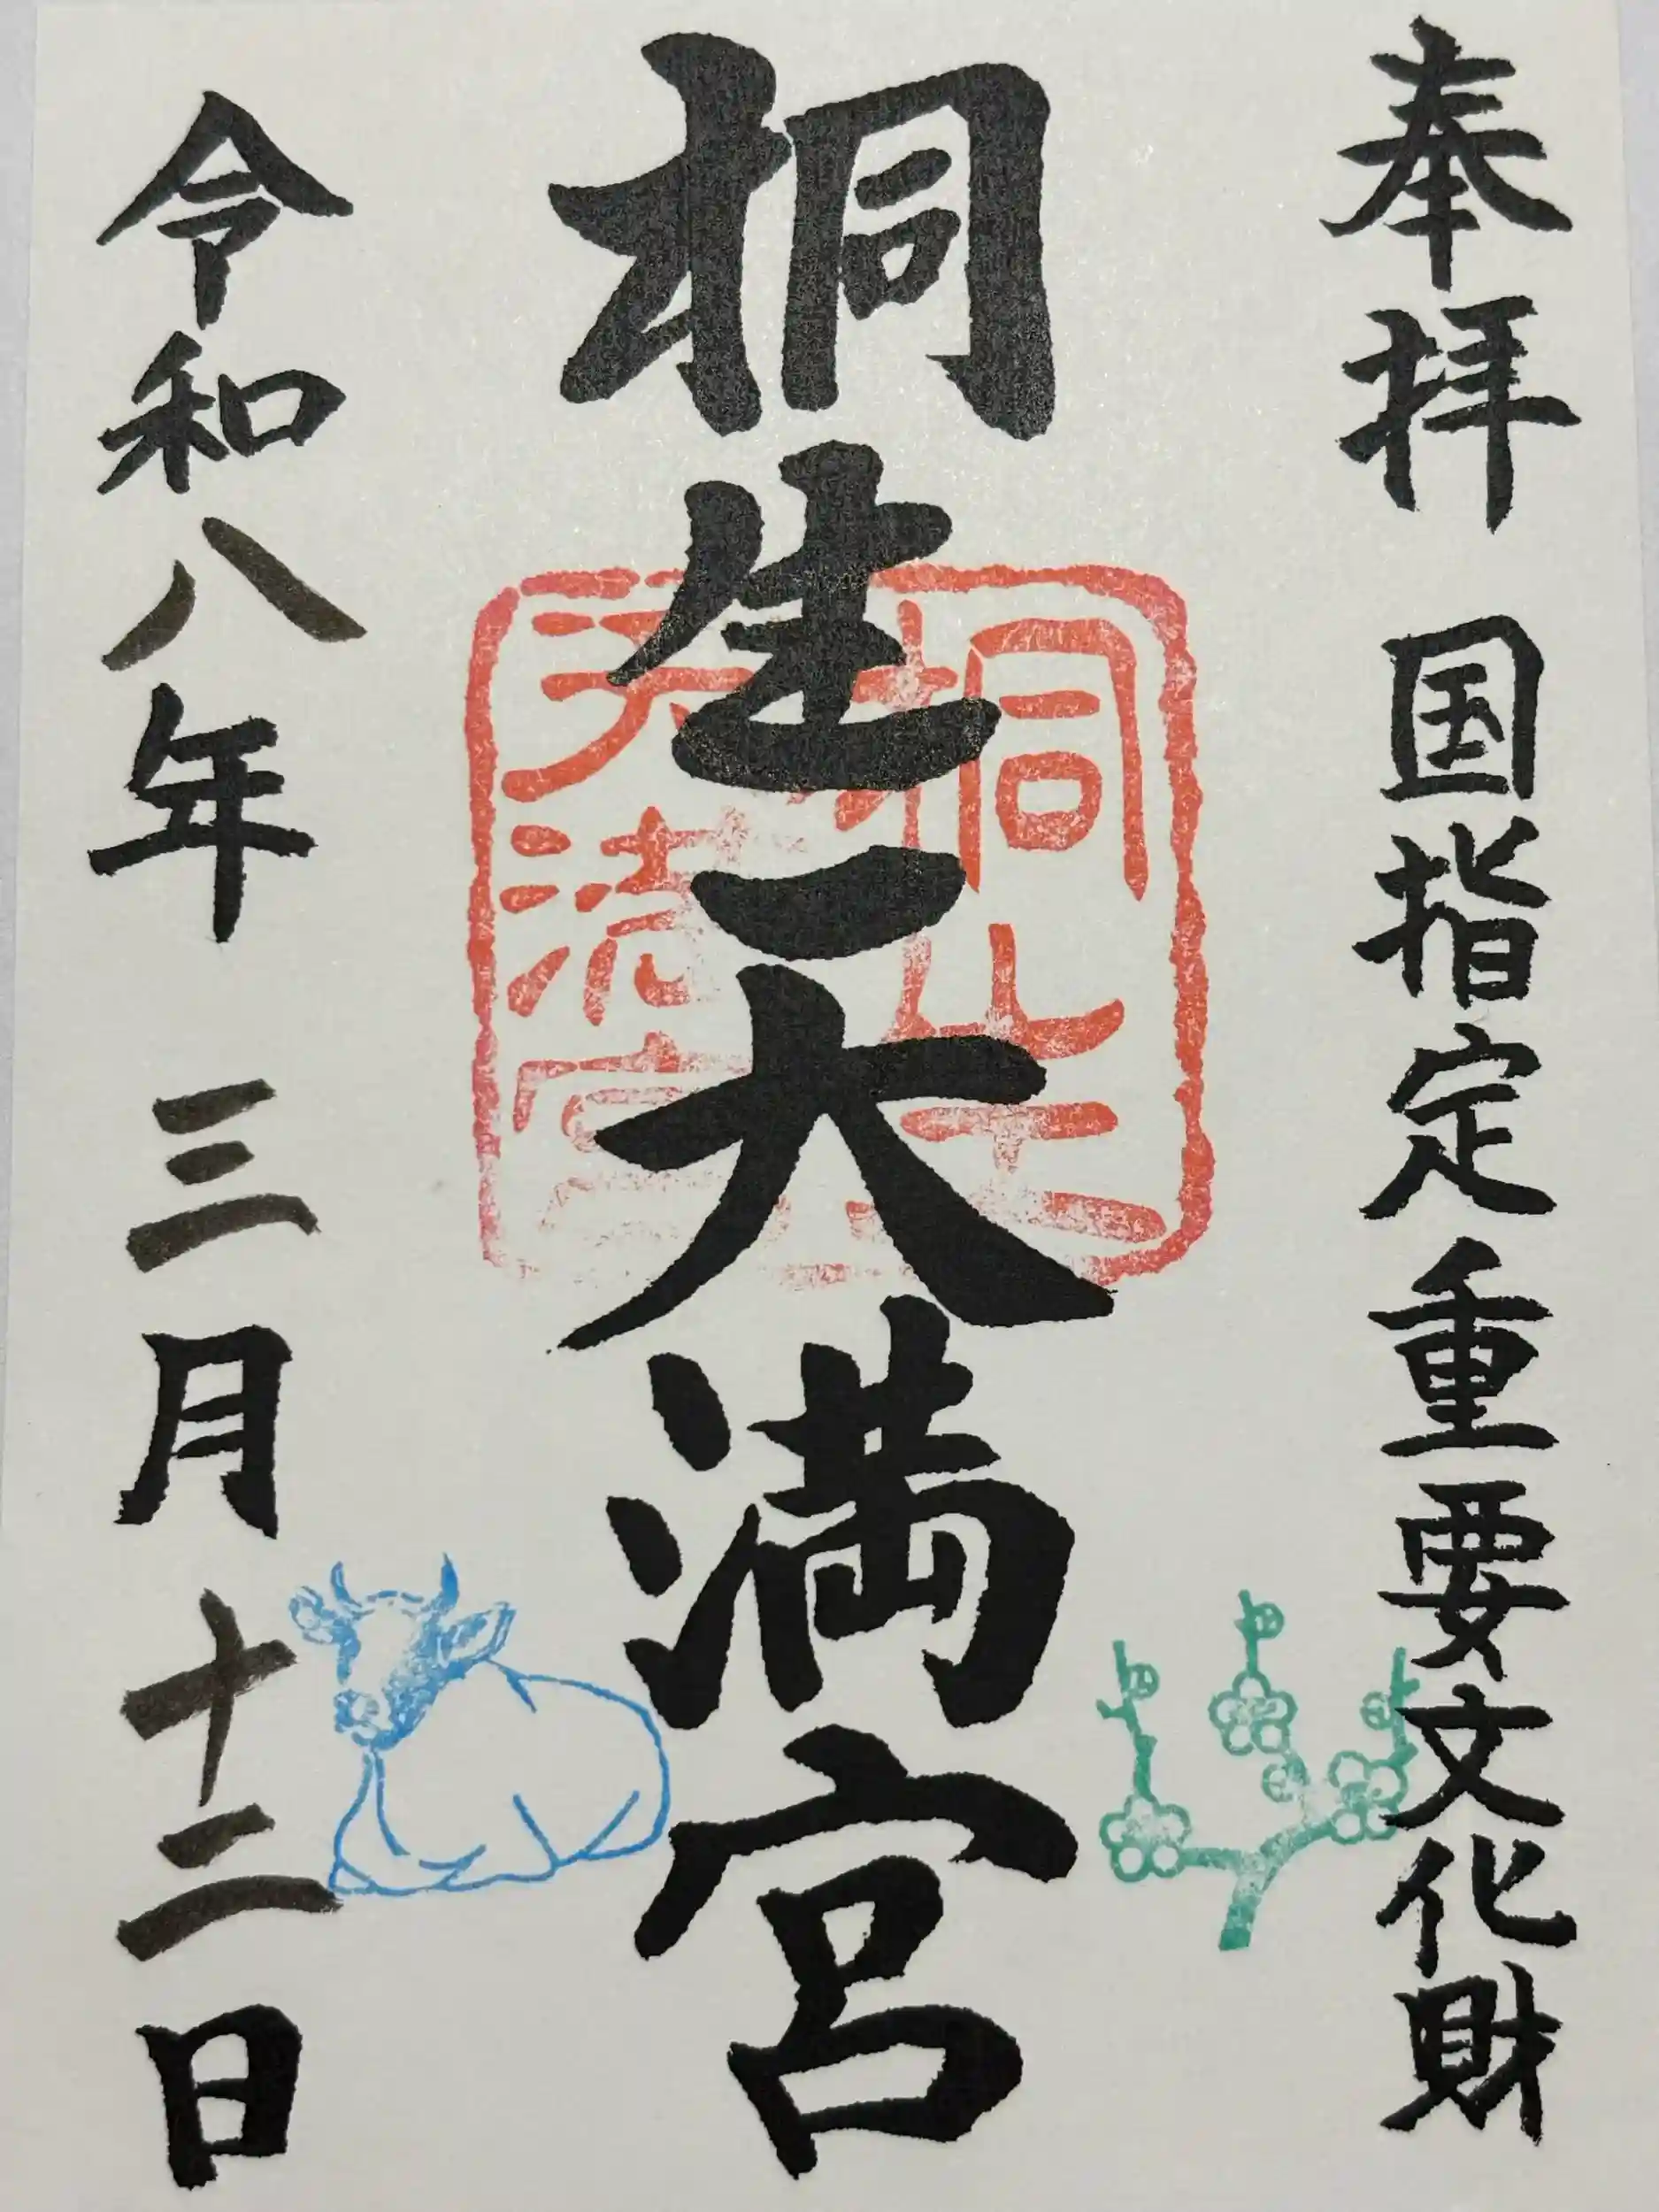 奉拝 国指定重要文化財
桐生天満宮
令和八年 三月十二日
桐生
天満宮